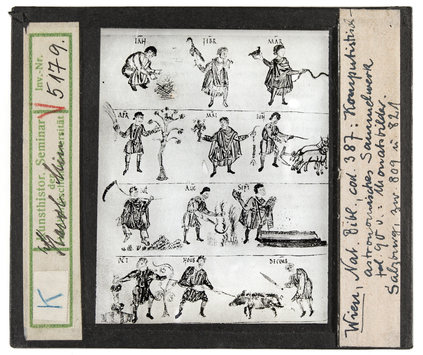 Kunsthistor. Seminar
der
Universität
Inv.-Nr.
V 5179.
K
IAN
FEBR
MAR
APR
MAI
IUN
AUG
SEPT
OCT
NOUB
DECEMB
Wien, Nat. Bibl. cod. 387. Komputistisch-
astronomisches Sammelwerk
fol. 90 v.: Monatsbilder.
Salzburg; zw. 809 u. 821